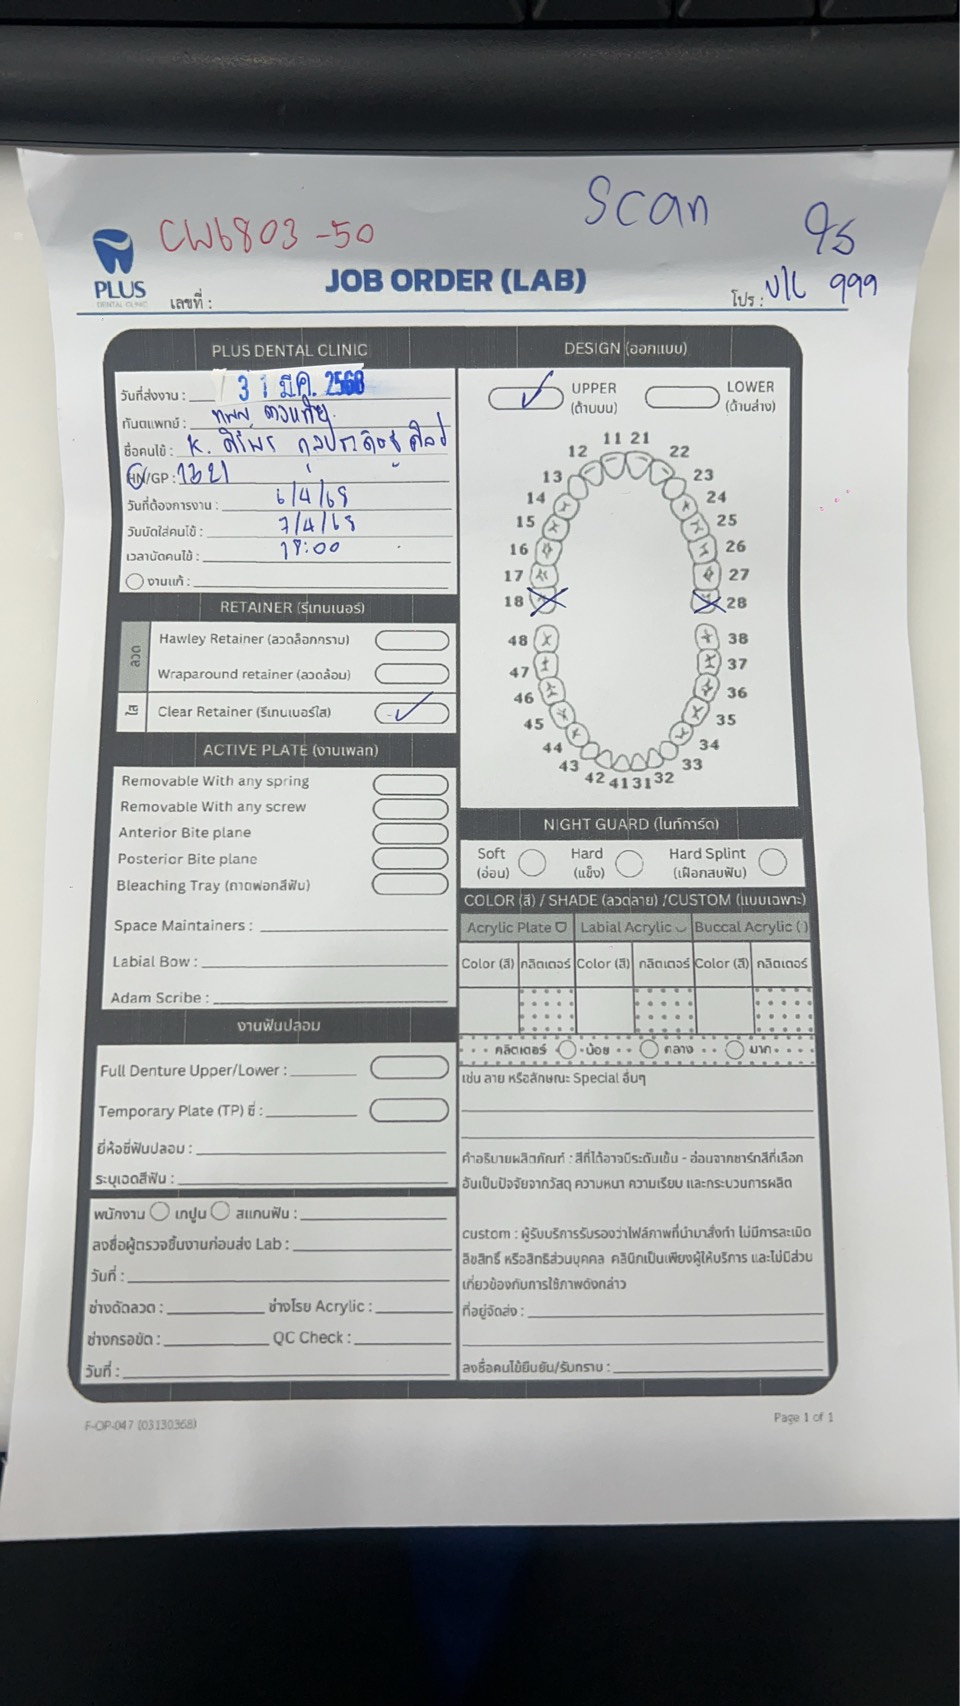 Scan
CW6803-50
9s
PLUS
DENTAL CLINIC
JOB ORDER (LAB)
เลขที่ :
โปร : U/L 999
PLUS DENTAL CLINIC
วันที่ส่งงาน : 31 มี.ค. 2568
ทันตแพทย์ :
ชื่อคนไข้ : K. ศิริพร
HN/GP : 1321
วันที่ต้องการงาน : 6/4/68
วันนัดใส่คนไข้ : 7/4/68
เวลานัดคนไข้ : 18:00
งานแก้ :
RETAINER (รีเทนเนอร์)
ลวด
Hawley Retainer (ลวดล็อกกราม)
Wraparound retainer (ลวดล้อม)
ใส
Clear Retainer (รีเทนเนอร์ใส)
ACTIVE PLATE (งานเพลท)
Removable With any spring
Removable With any screw
Anterior Bite plane
Posterior Bite plane
Bleaching Tray (ถาดฟอกสีฟัน)
Space Maintainers :
Labial Bow :
Adam Scribe :
งานฟันปลอม
Full Denture Upper/Lower :
Temporary Plate (TP) ซี่ :
ยี่ห้อซี่ฟันปลอม :
ระบุเฉดสีฟัน :
พนักงาน เทปูน สแกนฟัน :
ลงชื่อผู้ตรวจชิ้นงานก่อนส่ง Lab :
วันที่ :
ช่างดัดลวด : ช่างโรย Acrylic :
ช่างกรอขัด : QC Check :
วันที่ :
DESIGN (ออกแบบ)
UPPER
(ด้านบน)
LOWER
(ด้านล่าง)
11 21
12 22
13 23
14 24
15 25
16 26
17 27
18 28
48 38
47 37
46 36
45 35
44 34
43 33
42 41 31 32
NIGHT GUARD (ไนท์การ์ด)
Soft
(อ่อน)
Hard
(แข็ง)
Hard Splint
(เฝือกสบฟัน)
COLOR (สี) / SHADE (ลวดลาย) /CUSTOM (แบบเฉพาะ)
Acrylic Plate Labial Acrylic Buccal Acrylic ( )
Color (สี) กลิตเตอร์ Color (สี) กลิตเตอร์ Color (สี) กลิตเตอร์
กลิตเตอร์ น้อย กลาง มาก
เช่น ลาย หรือลักษณะ Special อื่นๆ
คำอธิบายผลิตภัณฑ์ : สีที่ได้อาจมีระดับเข้ม - อ่อนจากชาร์ทสีที่เลือก
อันเป็นปัจจัยจากวัสดุ ความหนา ความเรียบ และกระบวนการผลิต
custom : ผู้รับบริการรับรองว่าไฟล์ภาพที่นำมาสั่งทำ ไม่มีการละเมิด
ลิขสิทธิ์ หรือสิทธิส่วนบุคคล คลินิกเป็นเพียงผู้ให้บริการ และไม่มีส่วน
เกี่ยวข้องกับการใช้ภาพดังกล่าว
ที่อยู่จัดส่ง :
ลงชื่อคนไข้ยืนยัน/รับทราบ :
F-OP-047 (03130368)
Page 1 of 1